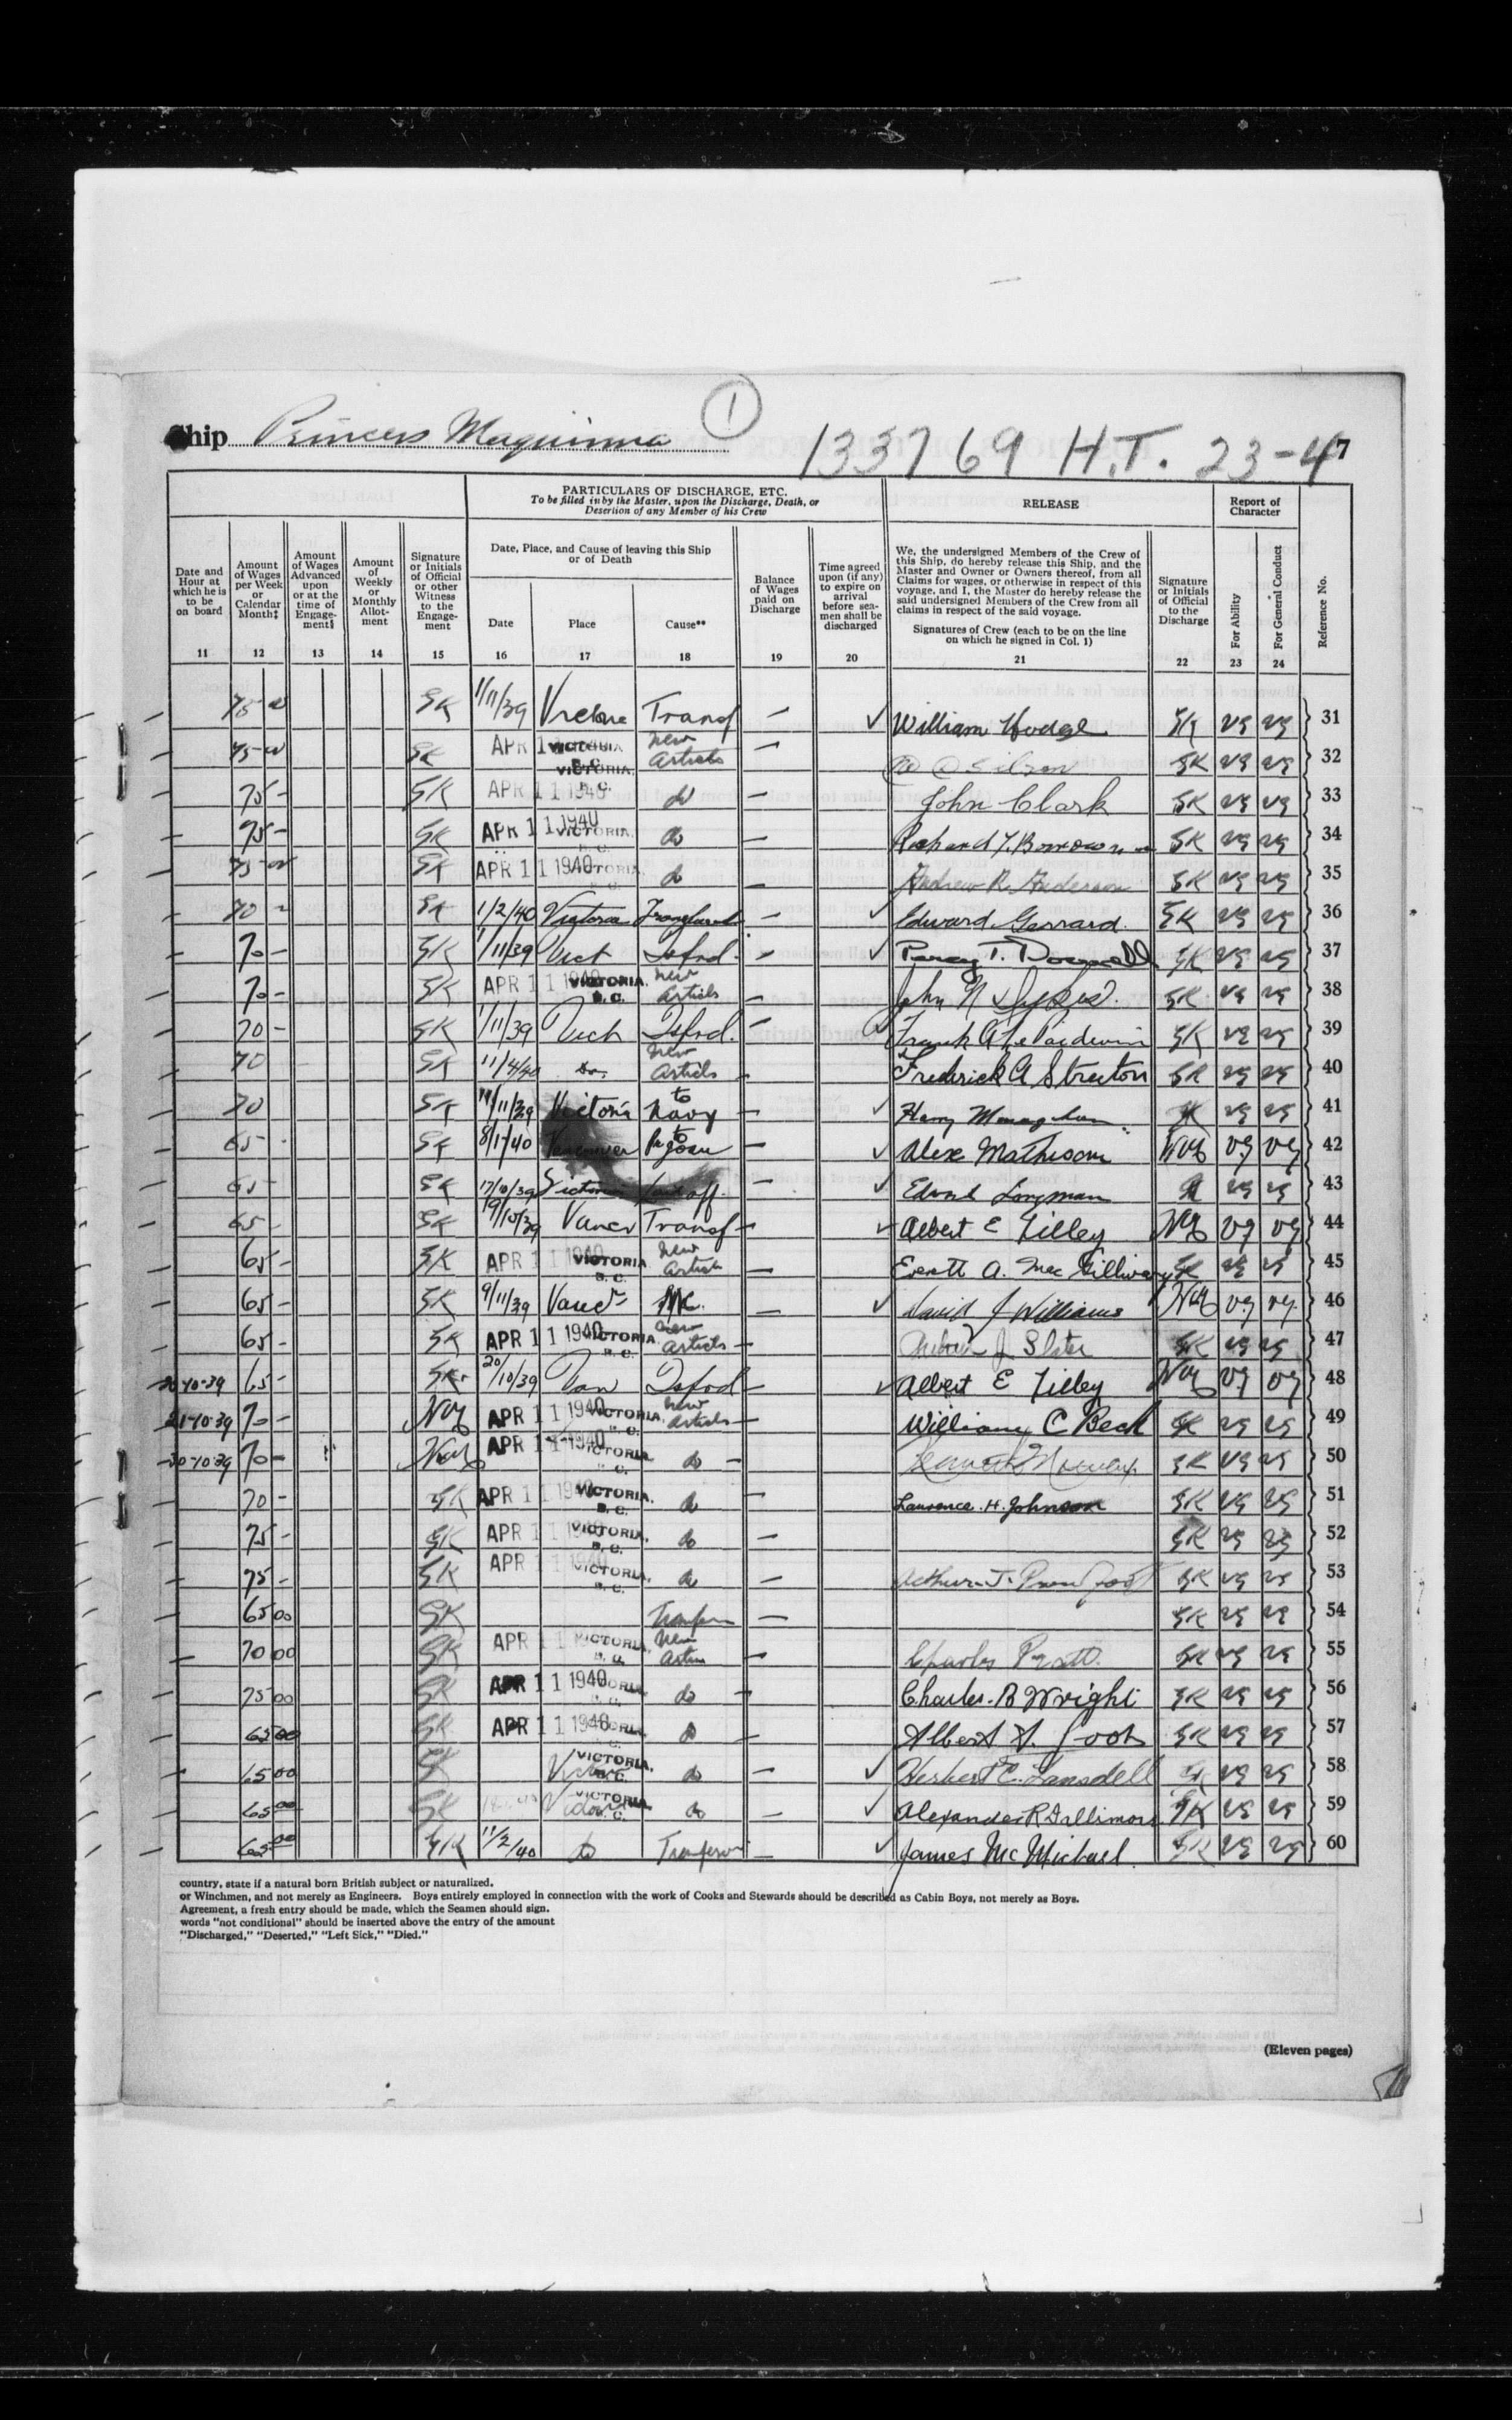 Ship Princess Maquinna
1
133769 H.T. 23-4
7
PARTICULARS OF DISCHARGE, ETC.
To be filled in by the Master, upon the Discharge, Death, or
Desertion of any Member of his Crew
RELEASE
Report of
Character
Date and
Hour at
which he is
to be
on board
Amount
of Wages
per Week
or
Calendar
Month‡
Amount
of Wages
Advanced
upon
or at the
time of
Engage-
ment§
Amount
of
Weekly
or
Monthly
Allot-
ment
Signature
or Initials
of Official
or other
Witness
to the
Engage-
ment
Date, Place, and Cause of leaving this Ship
or of Death
Date
Place
Cause**
Balance
of Wages
paid on
Discharge
Time agreed
upon (if any)
to expire on
arrival
before sea-
men shall be
discharged
We, the undersigned Members of the Crew of
this Ship, do hereby release this Ship, and the
Master and Owner or Owners thereof, from all
Claims for wages, or otherwise in respect of this
voyage, and I, the Master do hereby release the
said undersigned Members of the Crew from all
claims in respect of the said voyage.
Signatures of Crew (each to be on the line
on which he signed in Col. 1)
Signature
or Initials
of Official
to the
Discharge
For Ability
For General Conduct
Reference No.
11 12 13 14 15 16 17 18 19 20 21 22 23 24
75 - GK 1/11/39 Transf - ✓ William Hodge GK vg vg 31
75 - GK APR 1 VICTORIA B.C. New Articles - GK vg vg 32
75 - GK APR 11 1940 VICTORIA, B.C. do - John Clark GK vg vg 33
75 - GK APR 11 1940 VICTORIA, B.C. do - Richard GK vg vg 34
75 - GK APR 11 1940 VICTORIA, B.C. do - Andrew R. Anderson GK vg vg 35
70 - GK 1/2/40 Victoria - ✓ Edward Gerrard. GK vg vg 36
70 - GK 1/11/39 Vict Tsfrd. - ✓ Percy T. GK vg vg 37
70 - GK APR 11 1940 VICTORIA, B.C. New Articles - John N GK vg vg 38
70 - GK 1/11/39 Vict Tsfrd. - Frank A GK vg vg 39
70 GK 11/4/40 Do. New Articles - Frederick A Streeton GK vg vg 40
70 GK 11/39 Victoria to Navy - ✓ Harry Monaghan GK vg vg 41
65 - GK 8/1/40 Vancouver to - ✓ Alex Mathison vg vg 42
65 - GK 17/10/39 Victoria off - ✓ Longman vg vg 43
65 - GK 19/10/39 Vancr Transf - ✓ Albert E Tilley vg vg 44
65 - GK APR 11 1940 VICTORIA B.C. New Articles - Everett A. Mac Gillivary GK vg vg 45
65 - GK 9/11/39 Vancr - ✓ David J Williams vg vg. 46
65 - GK APR 11 1940 VICTORIA, B.C. New Articles - J Slater GK vg vg 47
20-10-39 65 - GK 20/10/39 Van Tsfrd - ✓ Albert E Tilley vg vg 48
21-10-39 70 - APR 11 1940 VICTORIA, B.C. New Articles - William C Beck GK vg vg 49
30-10-39 70 - APR 11 1940 VICTORIA, do - GK vg vg 50
70 - GK APR 11 1940 VICTORIA, B.C. do - Laurence. H. Johnson GK vg vg 51
75 - GK APR 11 1940 VICTORIA, B.C. do - GK vg vg 52
75 - GK APR 11 1940 VICTORIA, B.C. do - Arthur J. Proudfoot GK vg vg 53
65 00 GK Transfer - GK vg vg 54
70 00 GK APR 11 VICTORIA, B.C. New - Charles GK vg vg 55
75 00 GK APR 11 1940 do - Charles. B Wright GK vg vg 56
65 00 GK APR 11 1940 do Albert GK vg vg 57
65 00 GK VICTORIA, B.C. do - ✓ Herbert E. Lansdell GK vg vg 58
65 00 GK VICTORIA, B.C. do - ✓ Alexander R Dallimore GK vg vg 59
65 00 GK 11/2/40 do - ✓ James McMichael GK vg vg 60
country, state if a natural born British subject or naturalized.
or Winchmen, and not merely as Engineers. Boys entirely employed in connection with the work of Cooks and Stewards should be described as Cabin Boys, not merely as Boys.
Agreement, a fresh entry should be made, which the Seamen should sign.
words "not conditional" should be inserted above the entry of the amount
"Discharged," "Deserted," "Left Sick," "Died."
(Eleven pages)